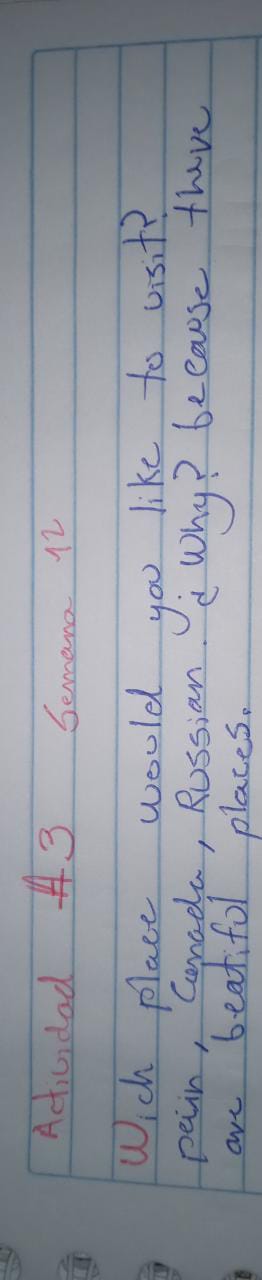 Actividad #3 Semana 12
Wich place would you like to visit?
paiin, Canada, Russian. ¿Why? because thave
are beatiful places.